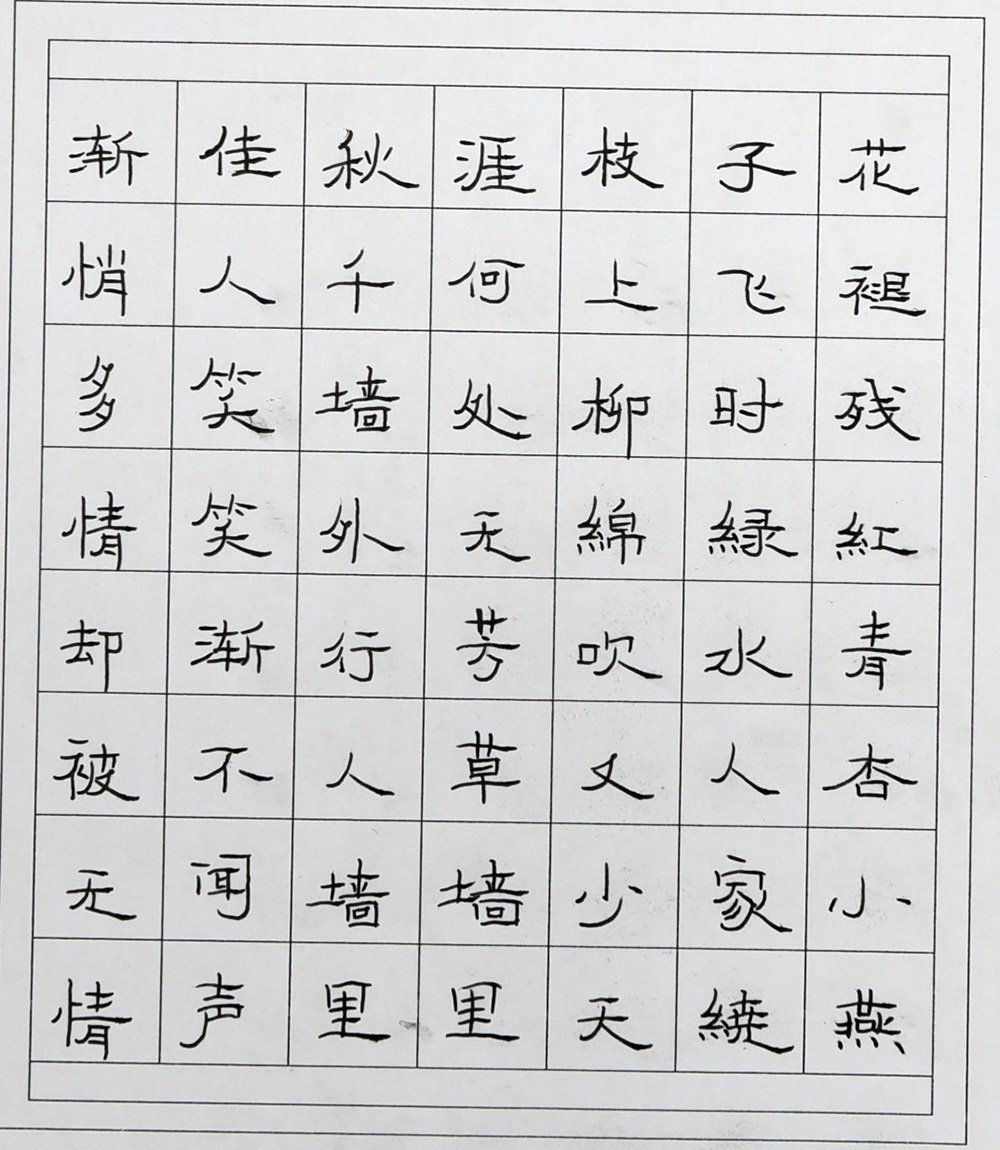 花褪残紅青杏小燕
子飞时緑水人家繞
枝上柳綿吹又少天
涯何处无芳草墙里
秋千墙外行人墙里
佳人笑笑渐不闻声
渐悄多情却被无情